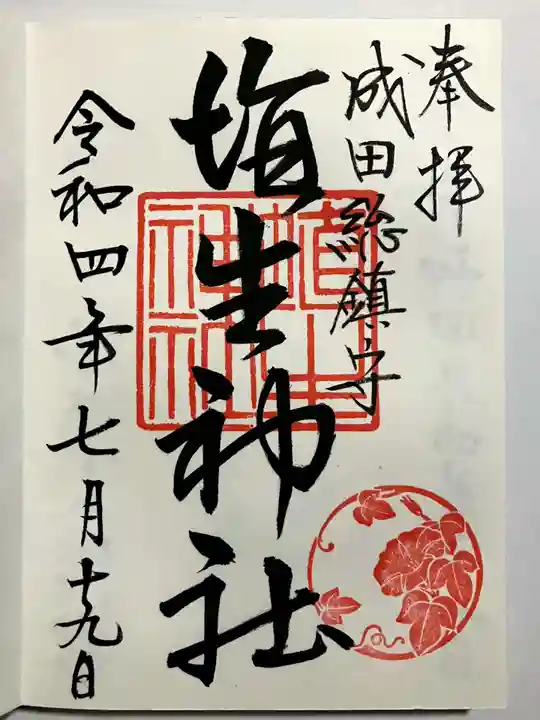 奉拝
成田総鎮守
埴生神社
令和四年七月十九日
埴生
神社